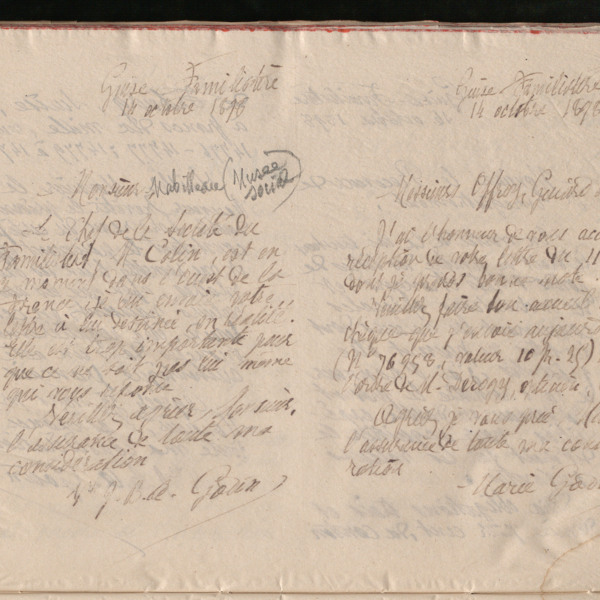 Guise Familistère
14 octobre 1898
Monsieur Mabilleau (Musée
social)
Le Chef de la Société du
Familistère, M. Colin, est en
ce moment dans l'ouest de la
France. Je lui envoie votre
lettre à lui destinée, en réalité.
Elle est trop importante pour
que ce ne soit pas lui même
qui vous réponde.
Veuillez agréer, Monsieur,
l'assurance de toute ma
considération
Vve J. B. A. Godin
Guise Familistère
14 octobre 1898
Messieurs Offroy, Guiard
J'ai l'honneur de vous acc
réception de votre lettre du 11
dont je prends bonne note.
Veuillez faire bon accueil
chèque que j'envoie aujourd
(N° 76958, valeur 10 fr. 25)
l'ordre de M.
Agréez, je vous prie, M
l'assurance de toute ma cons
ration
Marie God